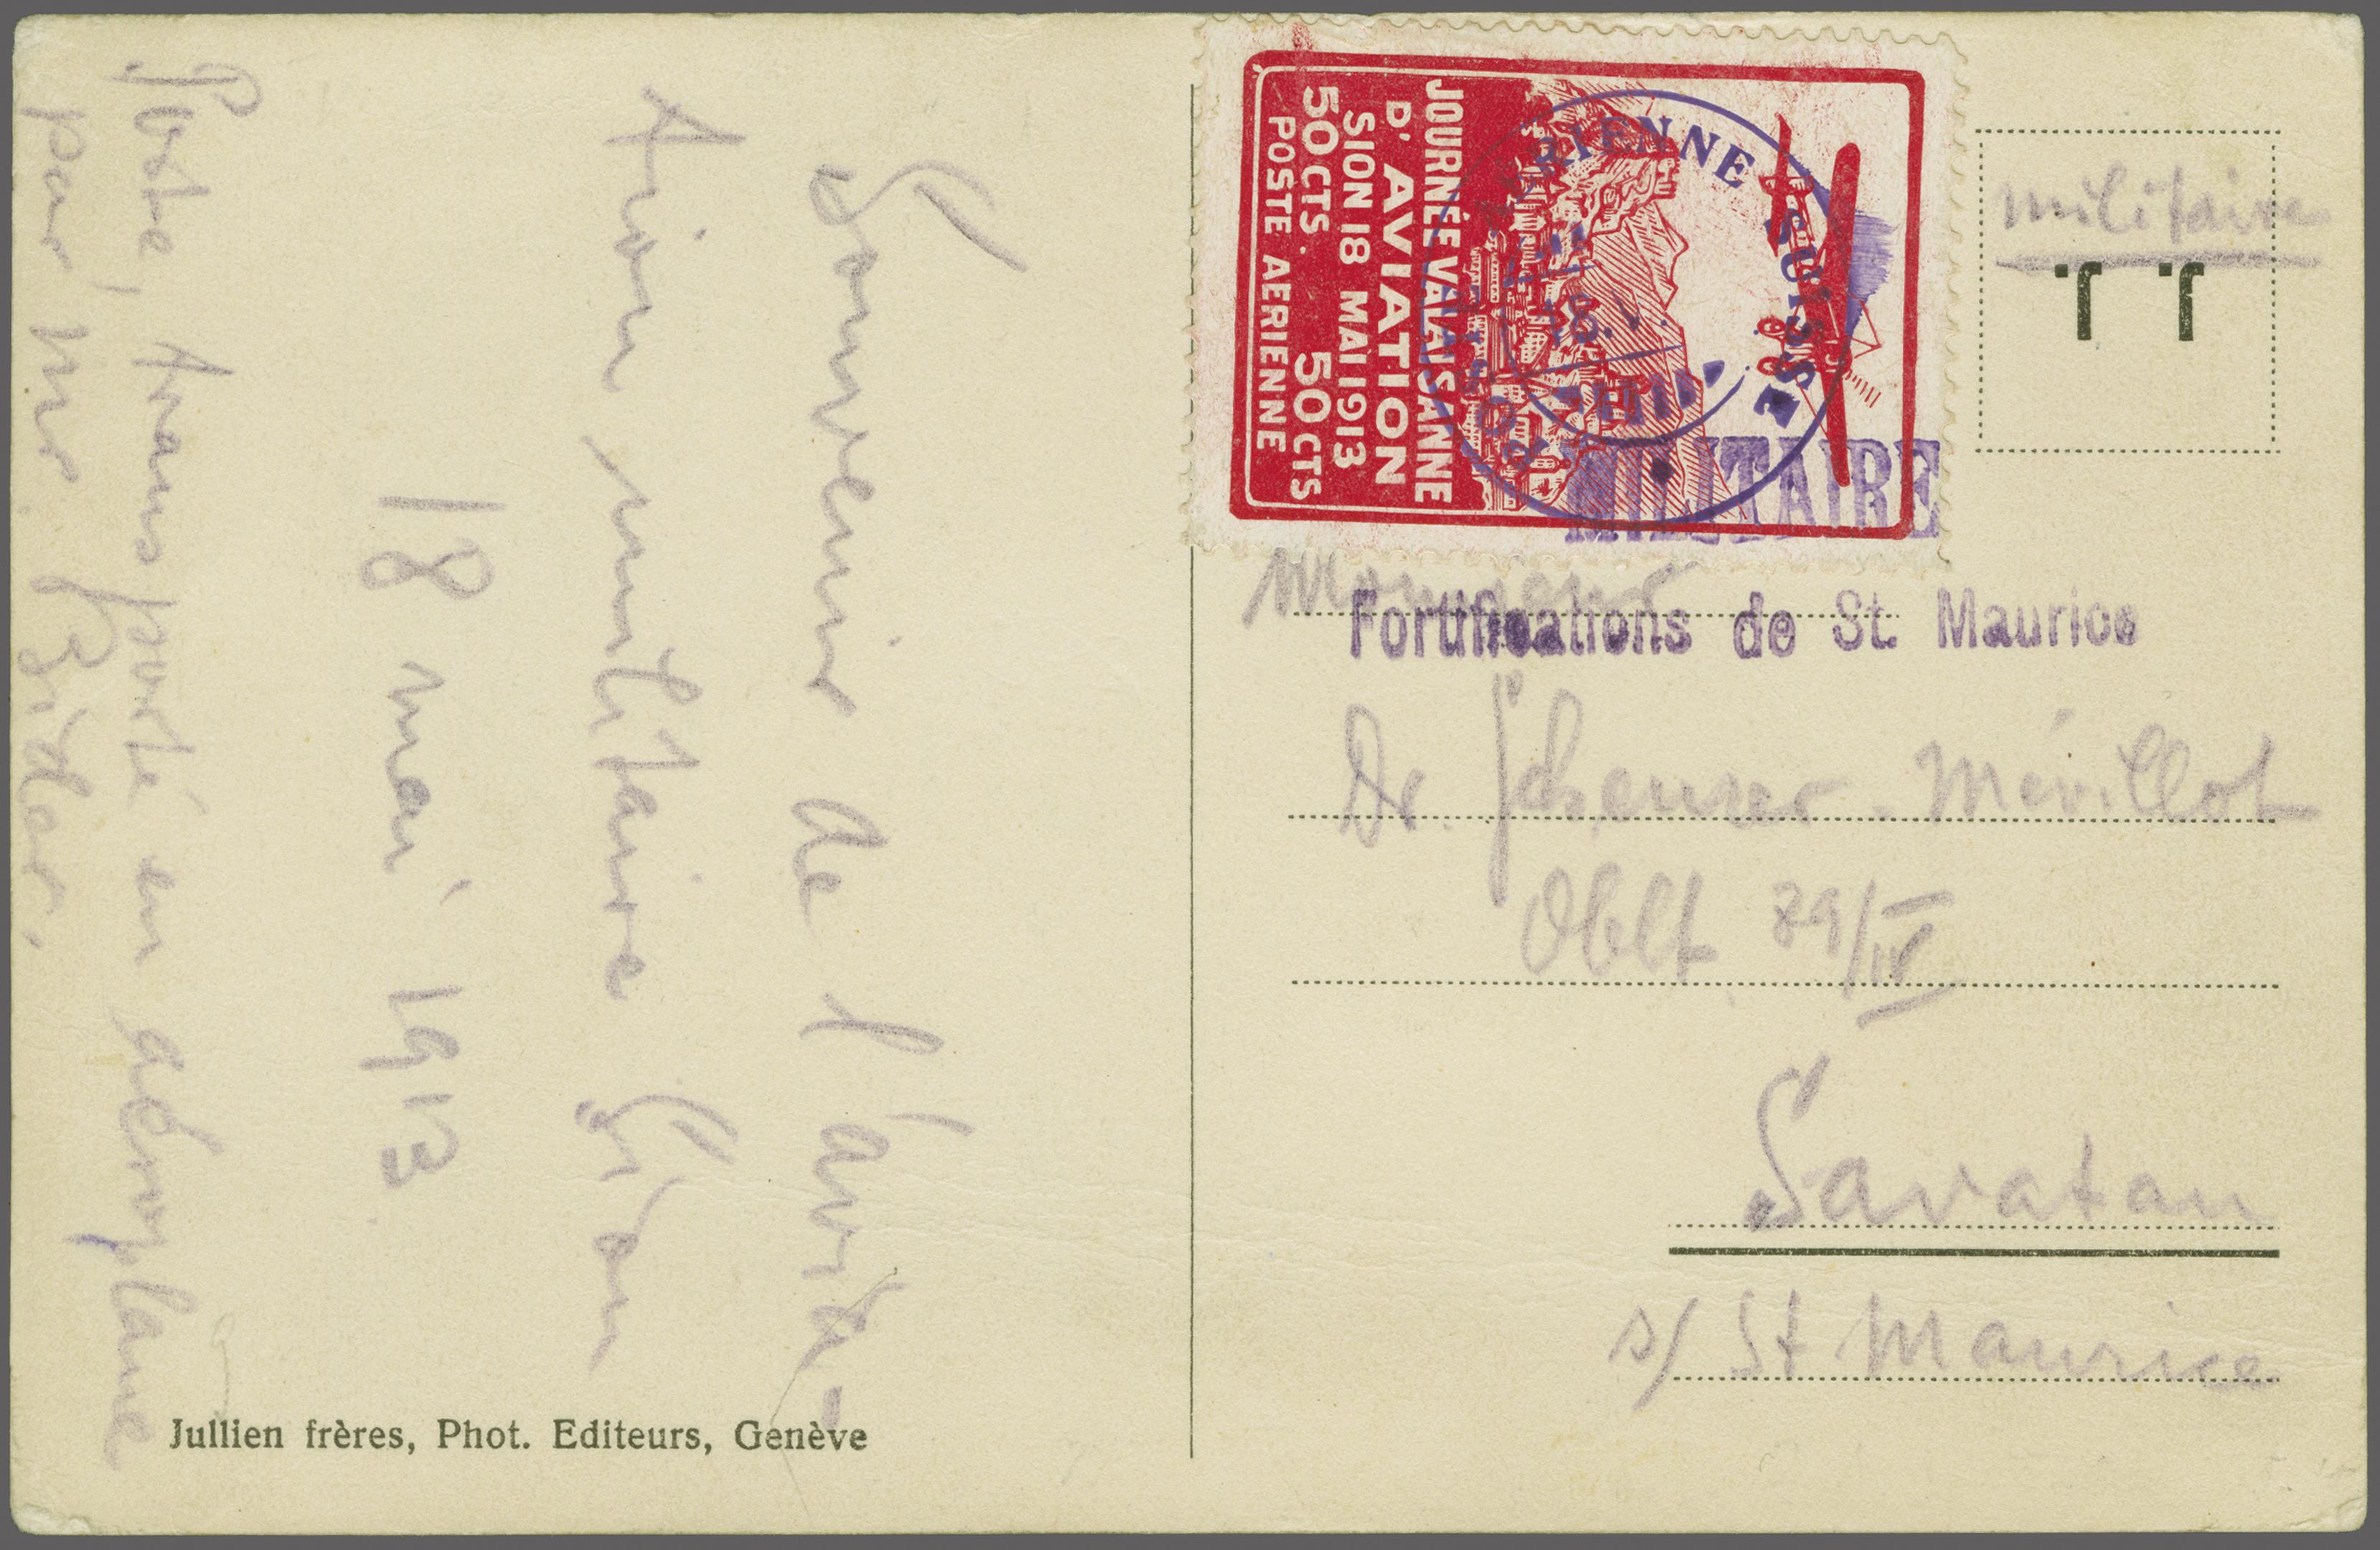 Souvenir de l'avia-
tion militaire Sion
18 mai 1913
Poste, transporté en aéroplane
par Mr. Bider.
Jullien frères, Phot. Editeurs, Genève
JOURNÉE VALAISANNE
D' AVIATION
SION 18 MAI 1913
50 CTS. 50 CTS
POSTE AERIENNE
AERIENNE SUISSE
MILITAIRE
militaire
J. J.
Monsieur
Fortifications de St. Maurice
Dr. Scheurer - Mévillot
Oblt 79/IV
Savatan
s/ St Maurice